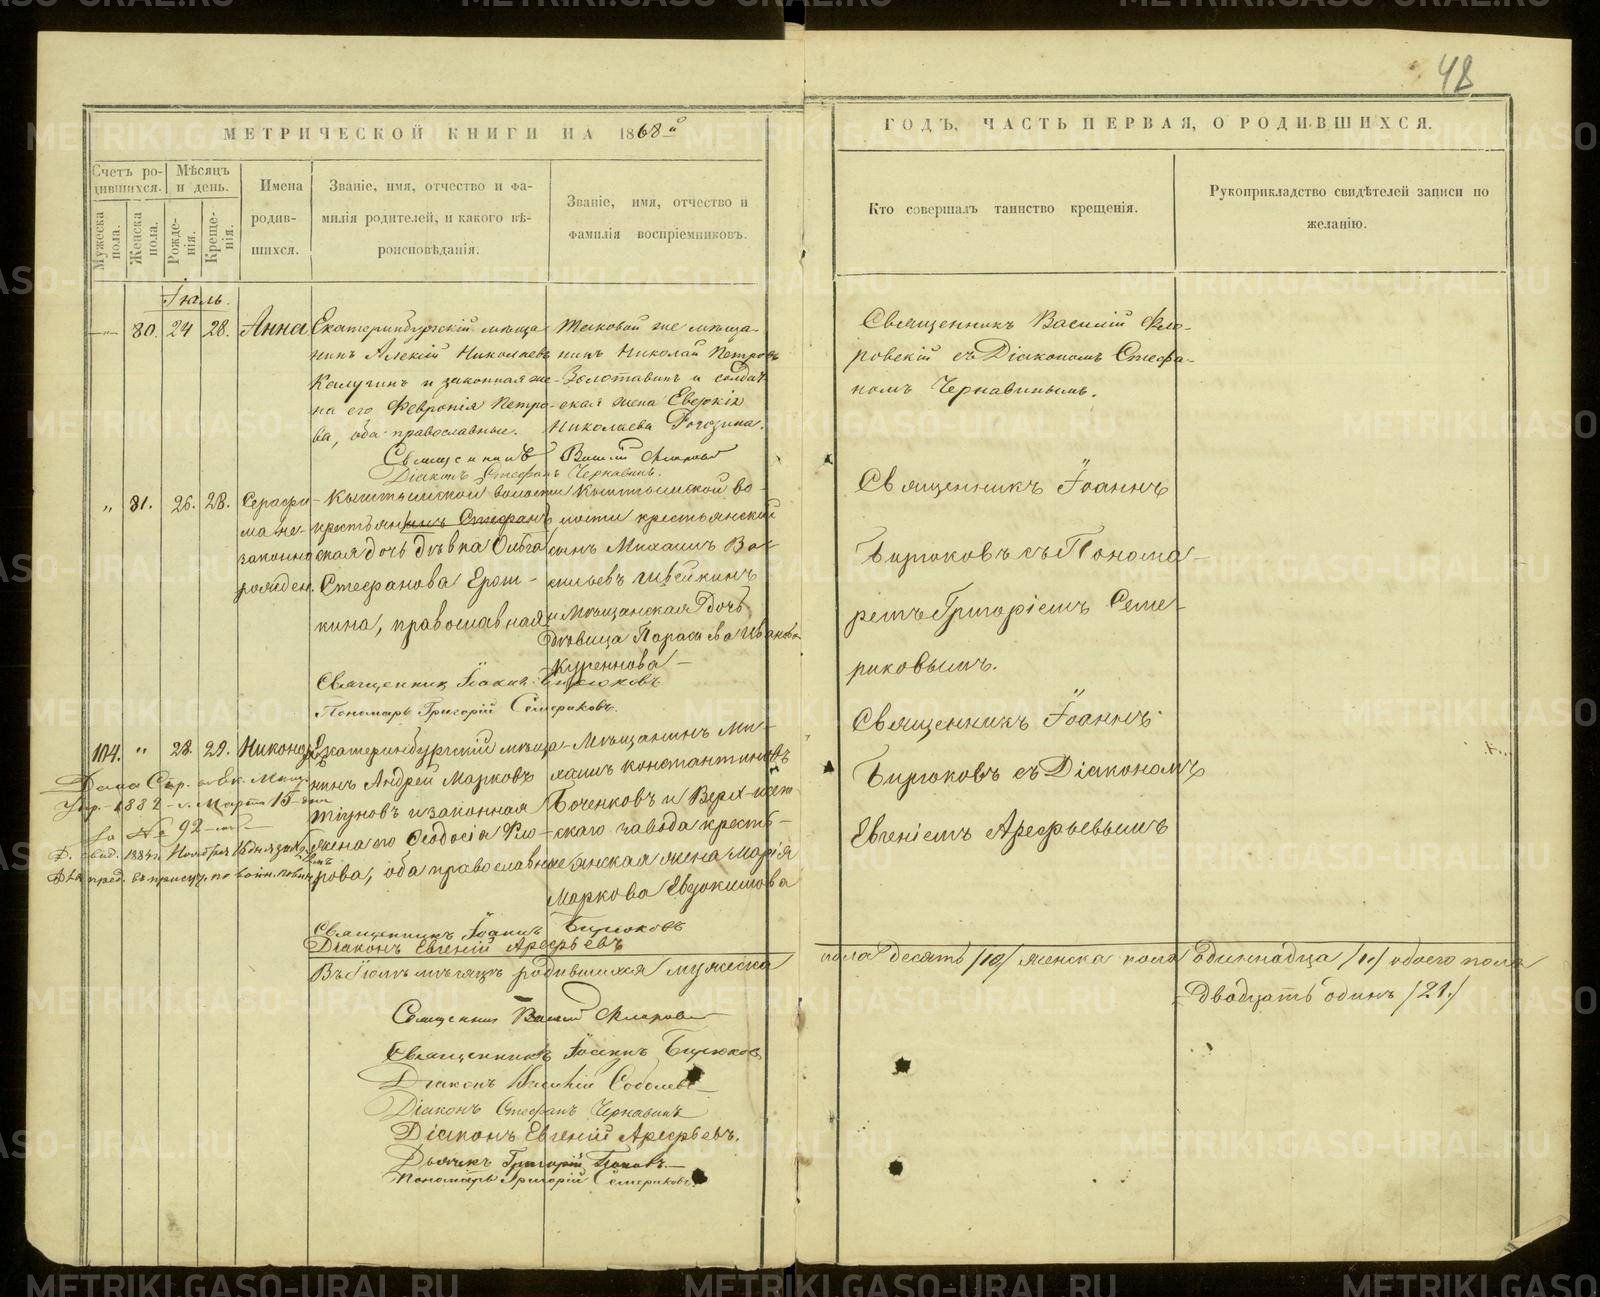 48
МЕТРИЧЕСКОЙ КНИГИ НА 1868й
ГОДЪ, ЧАСТЬ ПЕРВАЯ, О РОДИВШИХСЯ.
Счетъ ро-
дившихся.
Мужеска пола.
Женска пола.
Мѣсяцъ
и день.
Рожде-
нія.
Креще-
нія.
Имена
родив-
шихся.
Званіе, имя, отчество и фа-
милія родителей, и какого вѣ-
роисповѣданія.
Званіе, имя, отчество и
фамилія воспріемниковъ.
Кто совершалъ таинство крещенія.
Рукоприкладство свидѣтелей записи по
желанію.
Іюль.
— 80. 24 28. Анна
Екатеринбургскій мѣща
нинъ Алексій Николаевъ
Калугинъ и законная же-
на его Феврония Петро-
ва, оба православные.
Таковой же мѣща-
нинъ Николай Петровъ
Золотавинъ и солдат
ская жена Евдокія
Николаева Рогозина.
Священникъ Василій Фло-
ровскій съ Діакономъ Стефа-
номъ Чернавинымъ.
Священникъ Василій Флоровск
Діаконъ Стефанъ Чернавинъ.
„ 81. 26. 28. Серафи
ма не-
законно
рожден.
Кыштымской волости
крестьян инъ Стефанъ
ская дочь дѣвка Ольга
Стефанова Ерош-
кина, православная
Кыштымской во-
лости крестьянскій
сынъ Михаилъ Ва-
сильевъ Швейкинъ
и Мѣщанская дочь
дѣвица Параскева Иванова
Куреннова—
Священникъ Іоаннъ
Бирюковъ съ Понома-
ремъ Григоріемъ Семе-
риковымъ.
Священникъ Іоаннъ Бирюковъ
Пономарь Григорій Семериковъ.
104. „ 28. 29. Никоно
Екатеринбургскій мѣща-
нинъ Андрей Марковъ
тіуновъ и законная
жена его Феодосія Фло-
рова, оба православные
Мѣщанинъ Ми-
хаилъ Константиновъ
Боченковъ и Верх-Исет
скаго завода кресть-
янская жена Марія
Маркова Евдокимова
Священникъ Іоаннъ
Бирюковъ съ Діакономъ
Евгеніемъ Арефьевымъ
Дана Спр. въ Ек. Мѣщ.
Упр. 1882 г. Марта 15 дня
за № 92—мъ—
Д. свид. 1884 г. Ноября 16 дня за №
для пред. въ присут. по воин. повин
Священникъ Іоаннъ Бирюковъ
Діаконъ Евгеній Арефьевъ
Въ Іюлѣ мѣсяцѣ родившихся мужеска
пола десять /10/ женска пола одиннадца /11/ обоего пола
двадцать одинъ /21./
Священникъ Василій Флоровск
Священникъ Іоаннъ Бирюковъ
Діаконъ Василій Соболевъ
Діаконъ Стефанъ Чернавинъ
Діаконъ Евгеній Арефьевъ.
Дьячекъ Григорій Поповъ.—
Пономарь Григорій Семериковъ.
METRIKI.GASO-URAL.RU